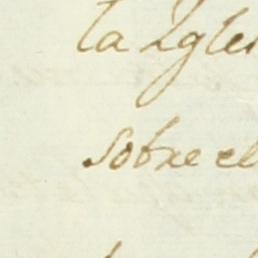 la Igles
sobre el